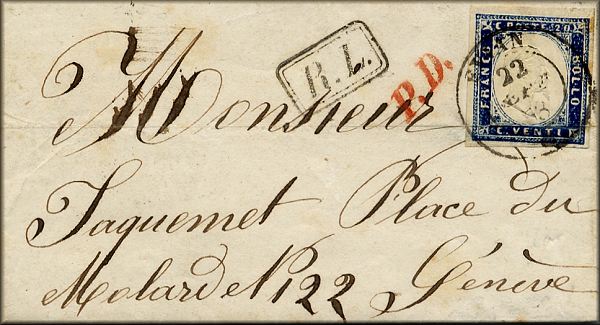 C. POSTE 20
FRANCO
BOLLO
C. VENTI
22
R.L.
P.D.
Monsieur
Jaquemet Place du
Molard N 122 Génève